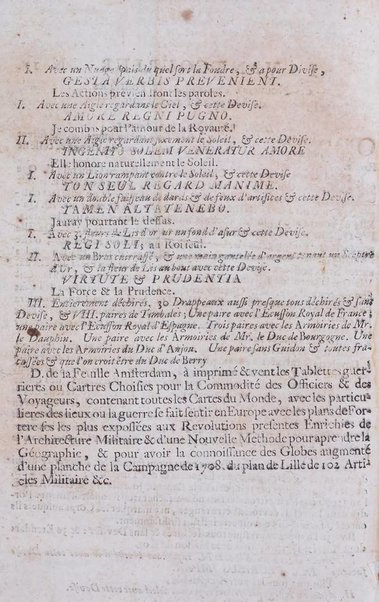 I. Avec un Nuage épais du quel sort la Foudre, & a pour Devise,
GESTA VERBIS PREVENIENT.
Les Actions previendront les paroles.
I. Avec une Aigle regardant le Ciel, & cette Devise.
AMORE REGNI PUGNO.
Je combas pour l'amour de la Royauté.
II. Avec une Aigle regardant fixement le Soleil, & cette Devise.
INGENITO SOLEM VENERATUR AMORE
Elle honore naturellement le Soleil.
I. Avec un Lion rampant contre le Soleil, & cette Devise
TON SEUL REGARD M'ANIME.
I. Avec un double faisseau de dards & de feux d'artifices & cette Devise.
TAMEN ALTA TENEBO.
Jauray pourtant le dessus.
I. Avec 3. fleurs de Lis d'or sur un fond d'asur & cette Devise.
REGI SOLI, au Roi seul.
II. Avec un Bras cuirassé, & une main gantelée d'argent tenant un Sceptre
d'Or, & la fleur de Lis au bout avec cette Devise.
VIRTUTE & PRUDENTIA
La Force & la Prudence.
III. Entierement déchirés, 30 Drappeaux aussi presque tous déchirés & sans
Devise, & VIII. paires de Timbales; Une paire avec l'Ecusson Royal de France;
une paire avec l'Ecusson Royal d'Espagne. Trois paires avec les Armoiries de Mr.
le Dauphin. Une paire avec les Armoiries de Mr. le Duc de Bourgogne. Une
paire avec les Armoiries du Duc d'Anjou. Une paire sans Guidon & toutes fra-
cassées & que l'on croit être du Duc de Berry
D. de la Feuille Amsterdam, à imprimé & vent les Tablettes guer-
rieres ou Cartres Choisies pour la Commodité des Officiers & des
Voyageurs, contenant toutes les Cartes du Monde, avec les particu-
lieres des lieux ou la guerre se fait sentir en Europe avec les plans de For-
teresses les plus expossées aux Revolutions presentes Enrichies de
l'Architecture Militaire & d'une Nouvelle Methode pour aprendre la
Géographie, & pour avoir la connoissance des Globes augmenté
d'une planche de la Campagne de 1708. du plan de Lille de 102 Arti-
cles Militaire &c.